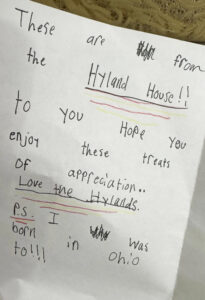 These are from
the Hyland House!!
to you Hope you
enjoy these treats
of appreciation..
Love the Hylands.
Ps. I was
born in Ohio
to!!!